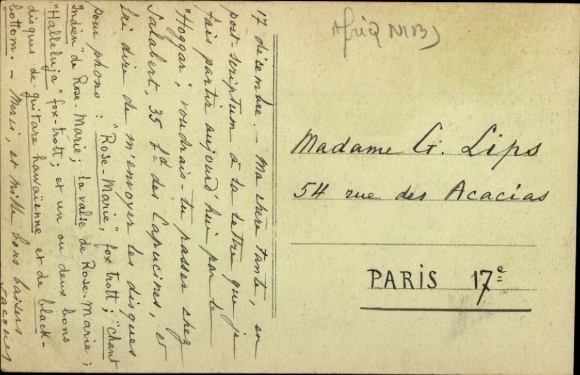 17 décembre. — Ma chère tante, en
post-scriptum à la lettre que je
fais partir aujourd'hui par le
"Hoggar", voudrais-tu passer chez
Salabert, 35 Bd des Capucines, et
lui dire de m'envoyer les disques
pour phono : "Rose-Marie", fox trott ; "chant
Indien" de Rose-Marie ; la valse de Rose-Marie ;
"Halleluja" fox-trott ; et un ou deux bons
disques de guitare hawaïenne et de black-
bottom. — Merci, et mille bons baisers.
Jacques
Madame G. Lips
54 rue des Acacias
PARIS 17e